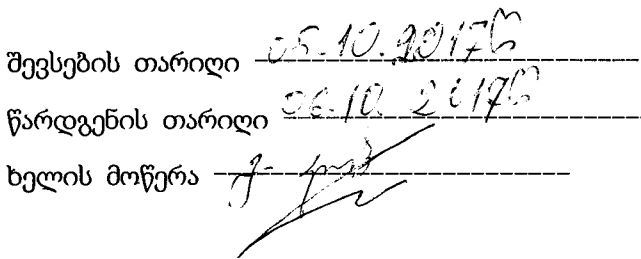 შევსების თარიღი 05.10.2017წ
წარდგენის თარიღი 06.10.2017წ
ხელის მოწერა